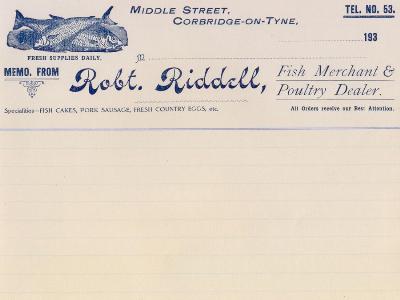 MIDDLE STREET,
CORBRIDGE-ON-TYNE,
TEL. NO. 53.
193
FRESH SUPPLIES DAILY.
M
MEMO. FROM
Robt. Riddell,
Fish Merchant &
Poultry Dealer.
Specialities—FISH CAKES, PORK SAUSAGE, FRESH COUNTRY EGGS, etc.
All Orders receive our Best Attention.